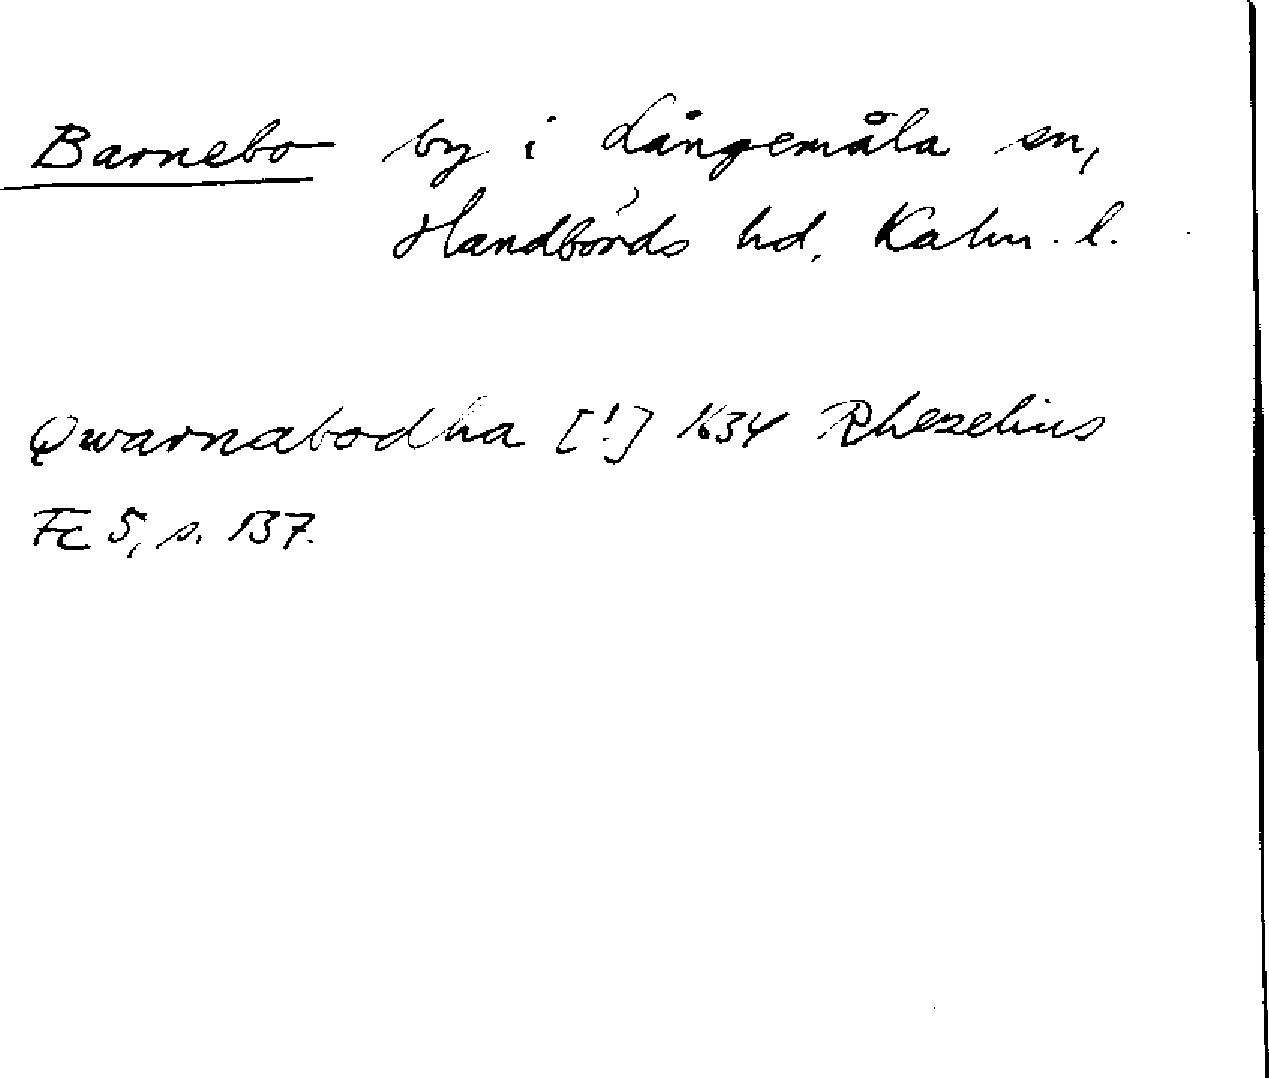 Barnebo by i Långemåla sn,
Handbörds hd, Kalm. l.
Qwarnabodha [!] 1634 Rhezelius
Fc 5, s. 137.